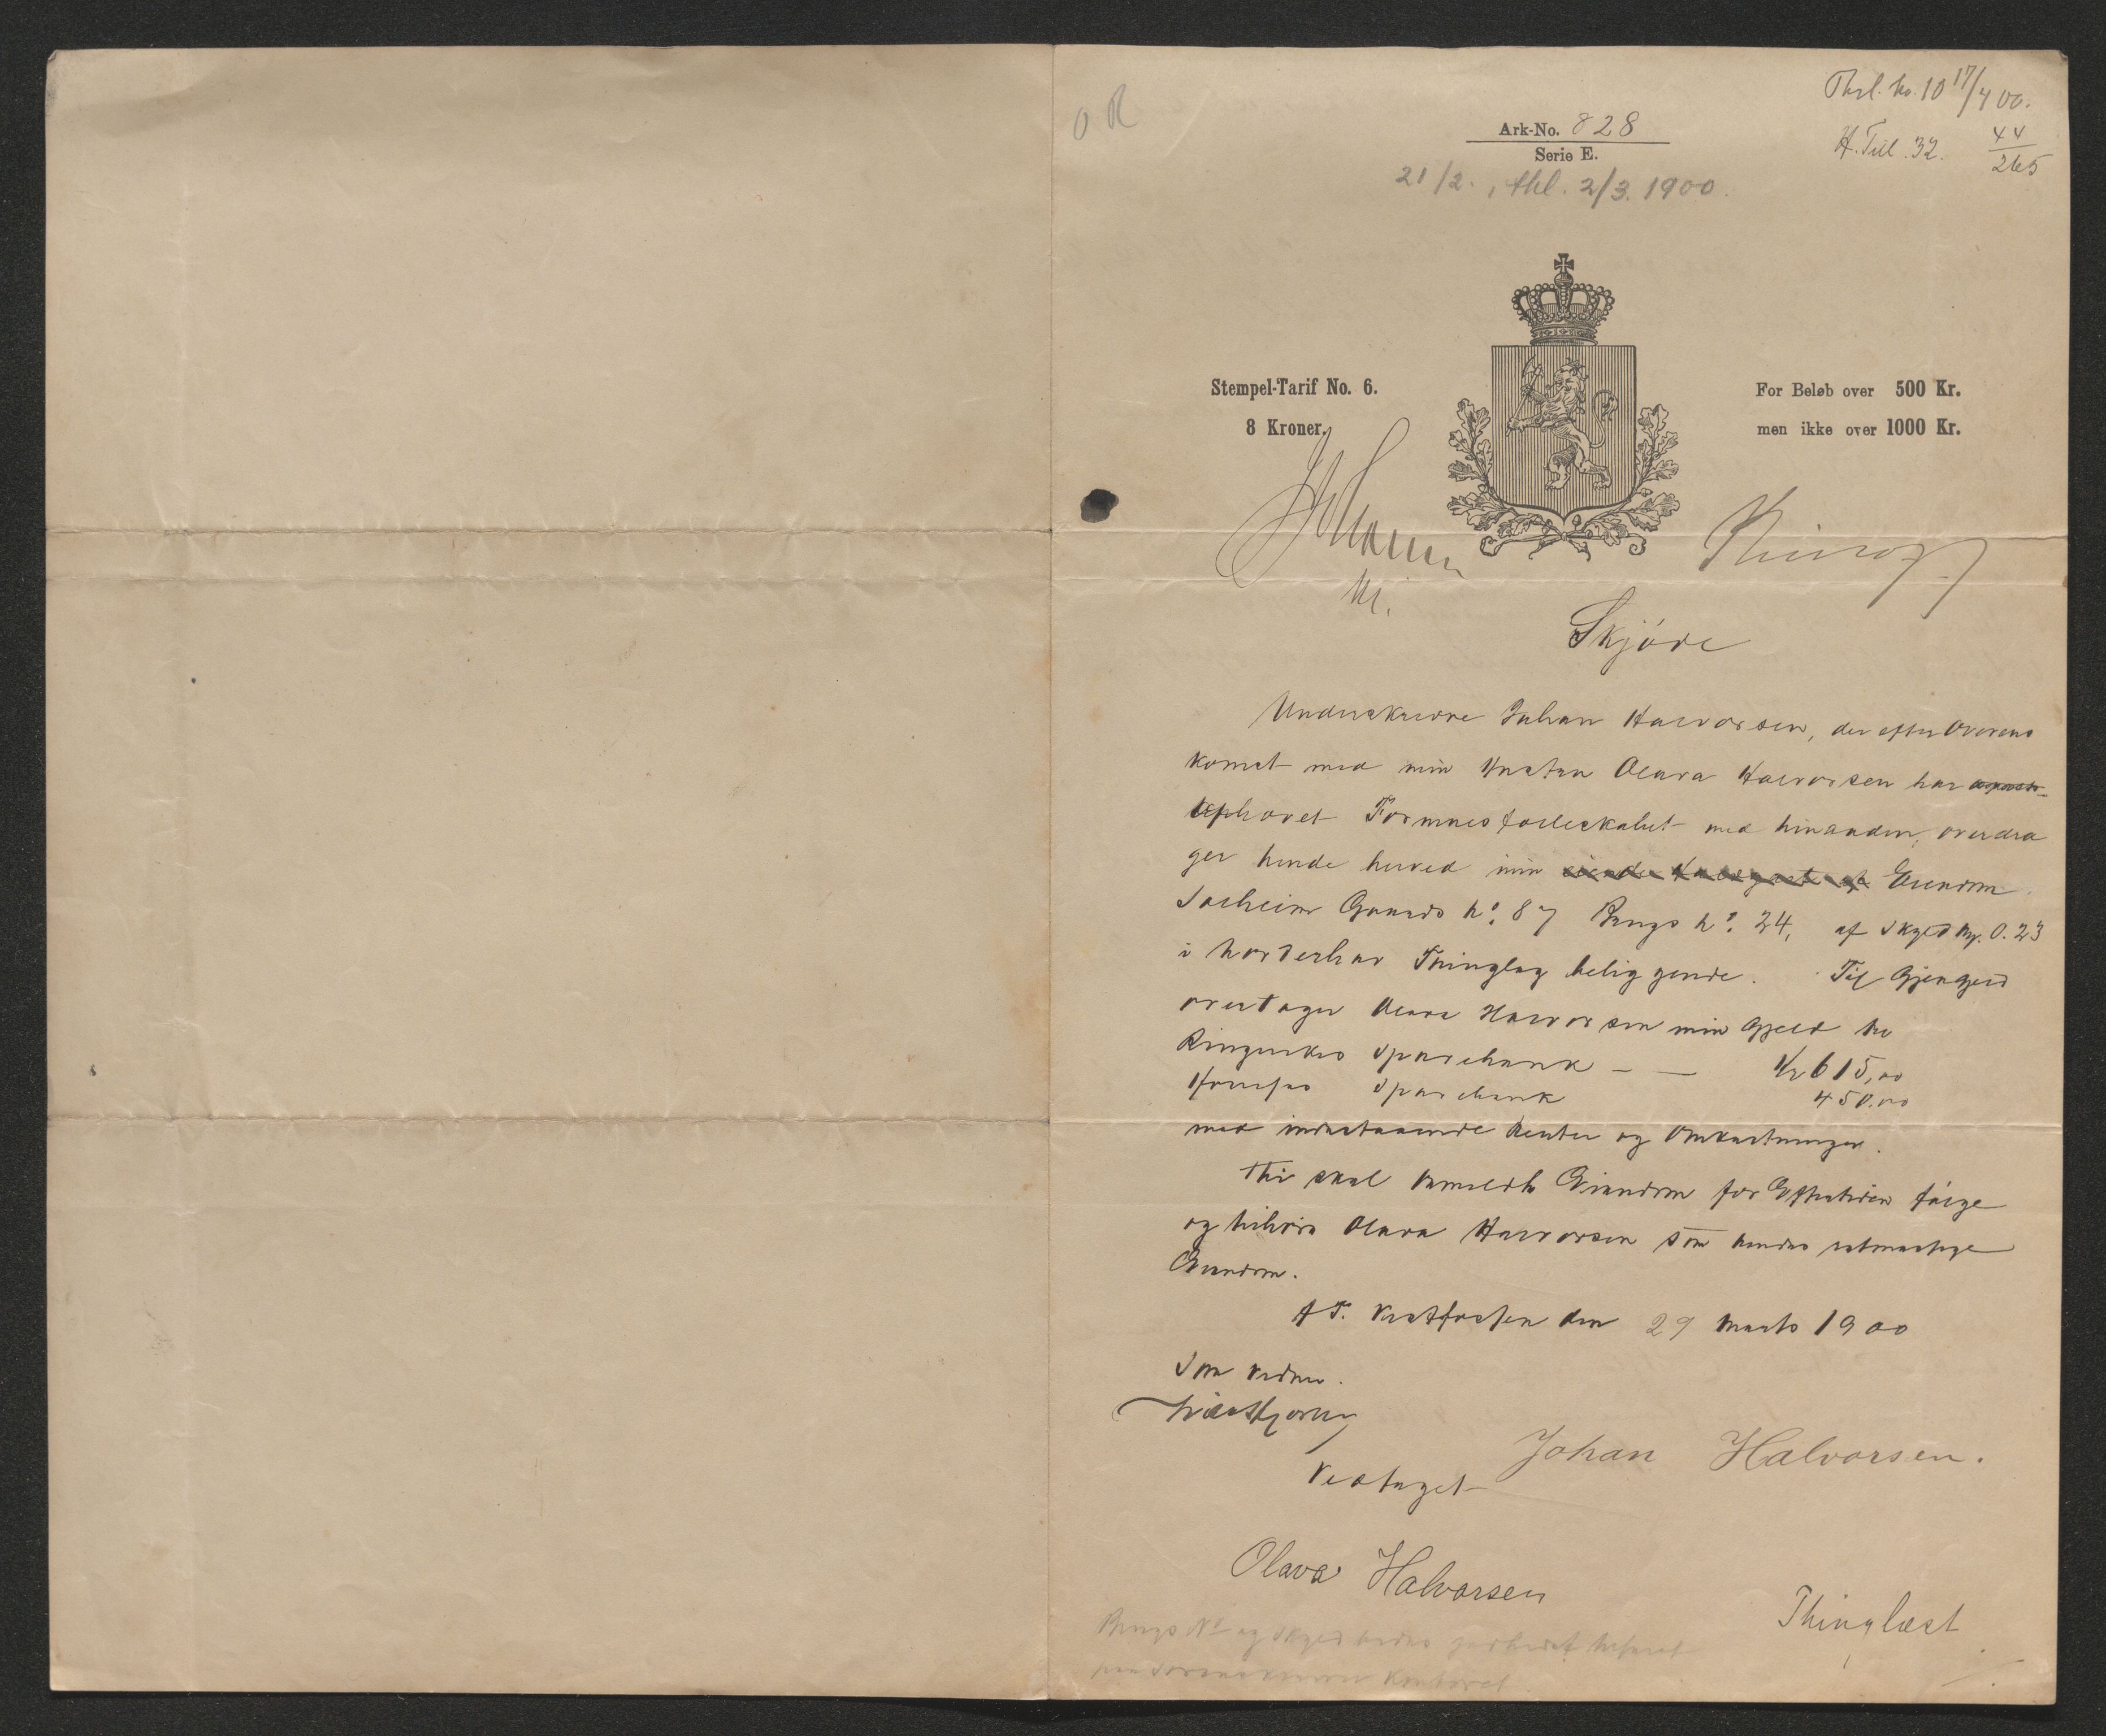 O R
Thgl. No. 10 17/4 00.
H. Till. 32. 44/265
Ark-No. 828
Serie E.
21/2., thl. 2/3. 1900.
Stempel-Tarif No. 6.
8 Kroner.
For Beløb over 500 Kr.
men ikke over 1000 Kr.
Skjøde
Underskrevne Johan Halvorsen, der efter Overens
komst med min Hustru Olava Halvorsen har
ophævet Formuesfælleskabet med hinanden, overdra
ger hende herved min Eiendom
Solheim Gaards No. 87 Brugs No. 24, af Skyld Mk. 0.23
i Norderhov Thinglag beliggende. Til Gjengjeld
overtager Olava Halvorsen min Gjæld til
Ringerikes Sparebank — — Kr 615,00
Hønefos Sparebank 450.00
med indestaaende Renter og Omkostninger.
Thi skal anmeldte Eiendom for Eftertiden følge
og tilhøre Olava Halvorsen som hendes retmæssige
Eiendom.
p. T. Vestfossen den 29 Marts 1900
Som Verge.
Johan Halvorsen.
Vedtaget
Olava Halvorsen
Thinglæst
Brugs No og Skyld